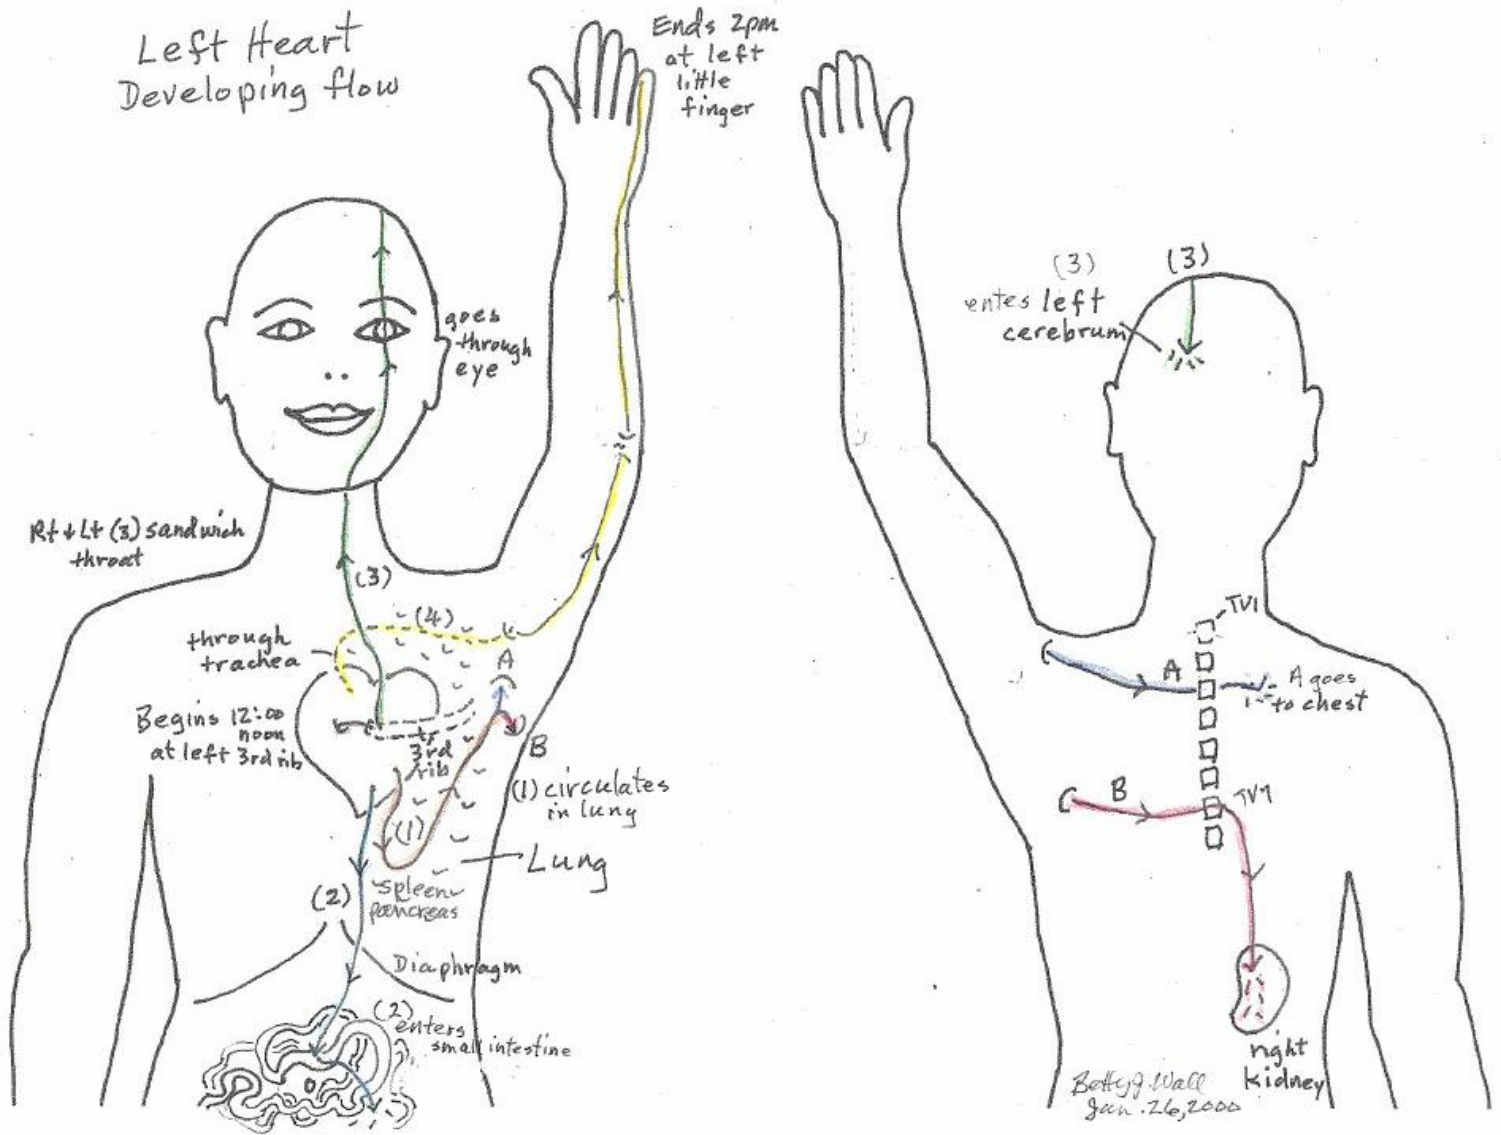 Left Heart
Developing flow
Ends 2pm
at left
little
finger
goes
through
eye
Rt + Lt (3) sandwich
throat
(3)
(4)
through
trachea
A
Begins 12:00
noon
at left 3rd rib
3rd
rib
B
(1) circulates
in lung
(1)
Lung
(2)
spleen
pancreas
Diaphragm
(2)
enters
small intestine
(3)
(3)
entes left
cerebrum
TV1
A
A goes
to chest
B
TV7
right
kidney
Betty J. Wall
Jan. 26, 2000